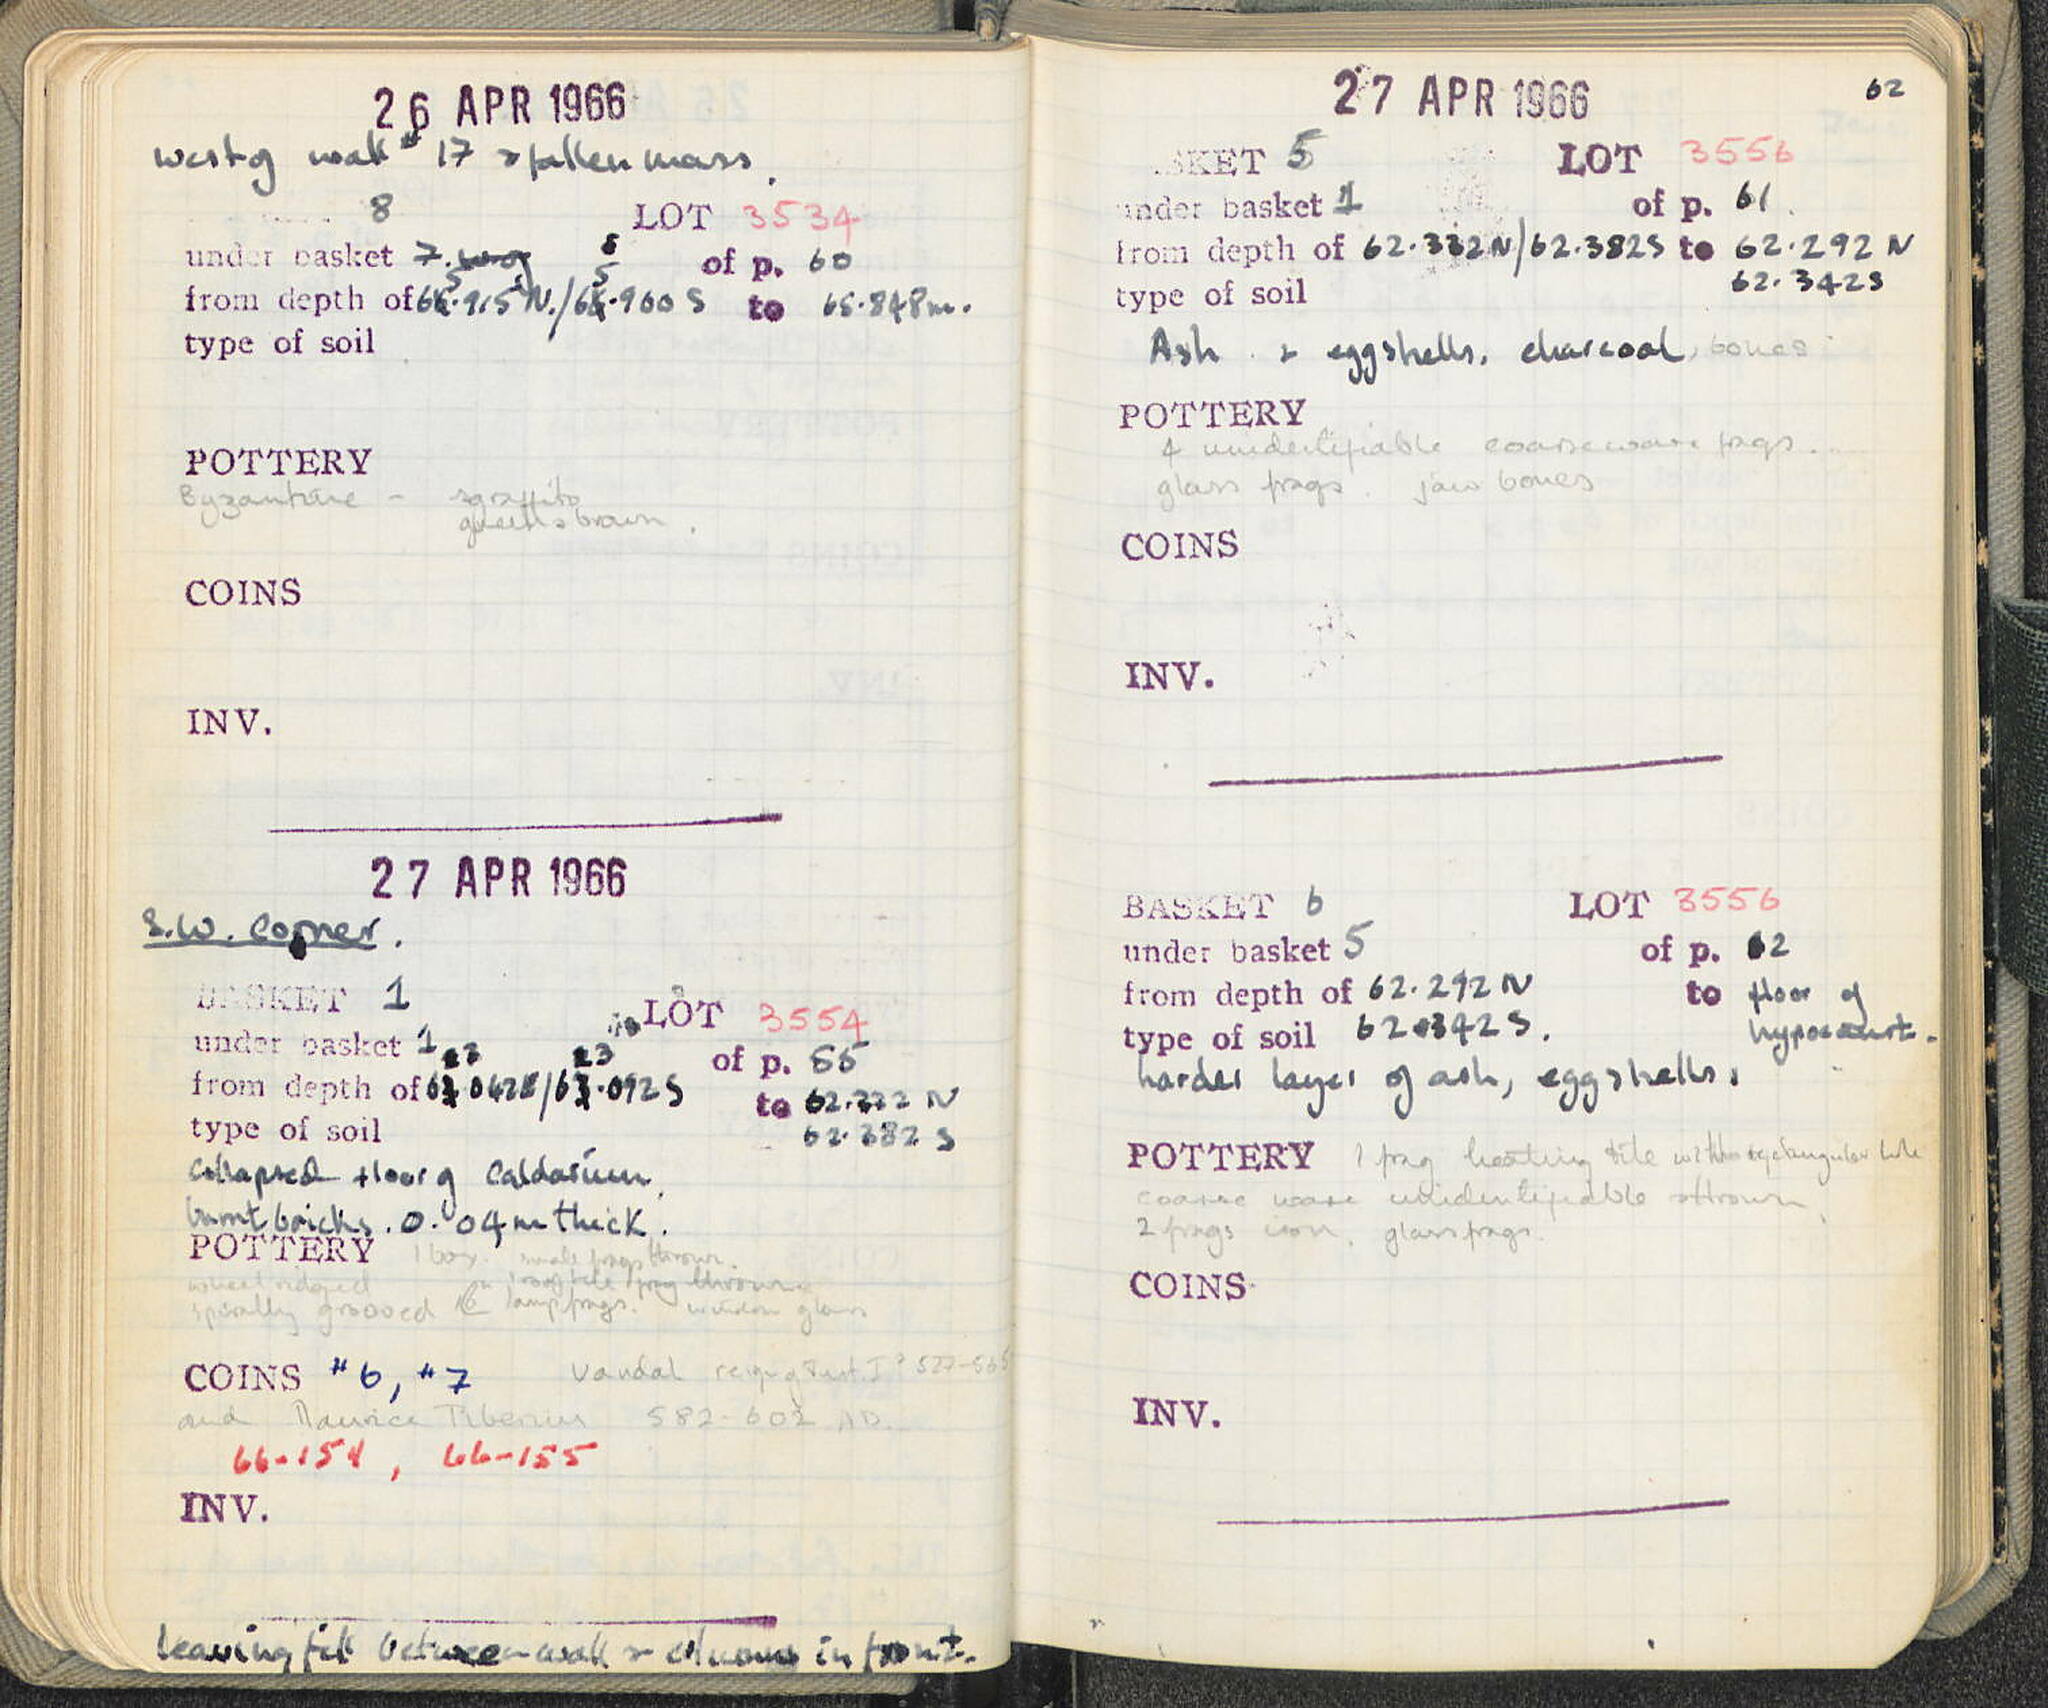 26 APR 1966
West of wall #17 & fallen mass.
8 LOT 3534
under basket 7. of p. 60
from depth of 65.915 N./65.900 S to 65.848m.
type of soil
POTTERY
Byzantine - sgraffito
green & brown.
COINS
INV.
27 APR 1966
S.W. Corner.
BASKET 1 LOT 3554
under basket 1 of p. 55
from depth of 63.092 S to 62.332 N
type of soil 62.382 S
Collapsed floor of Caldarium.
burnt bricks. 0.04m thick.
POTTERY 1 box. small frags thrown.
wheel ridged rooftile frag thrown
spirally grooved lamp frags. window glass
COINS #6, #7 Vandal reign of Just. I? 527-565
and Maurice Tiberius 582-602 AD.
66-154, 66-155
INV.
Leaving fill between wall & columns in front.
62
27 APR 1966
SKET 5 LOT 3556
under basket 1 of p. 61.
from depth of 62.332N/62.382S to 62.292 N
type of soil 62.342S
Ash & eggshells, charcoal, bones
POTTERY
4 unidentifiable coarseware frags.
glass frags. jaw bones
COINS
INV.
BASKET 6 LOT 3556
under basket 5 of p. 62
from depth of 62.292 N to floor of
type of soil 62.342 S. hypocaust.
harder layer of ash, eggshells.
POTTERY 1 frag heating tile with rectangular hole
coarse ware unidentifiable thrown
2 frags iron, glass frags.
COINS
INV.